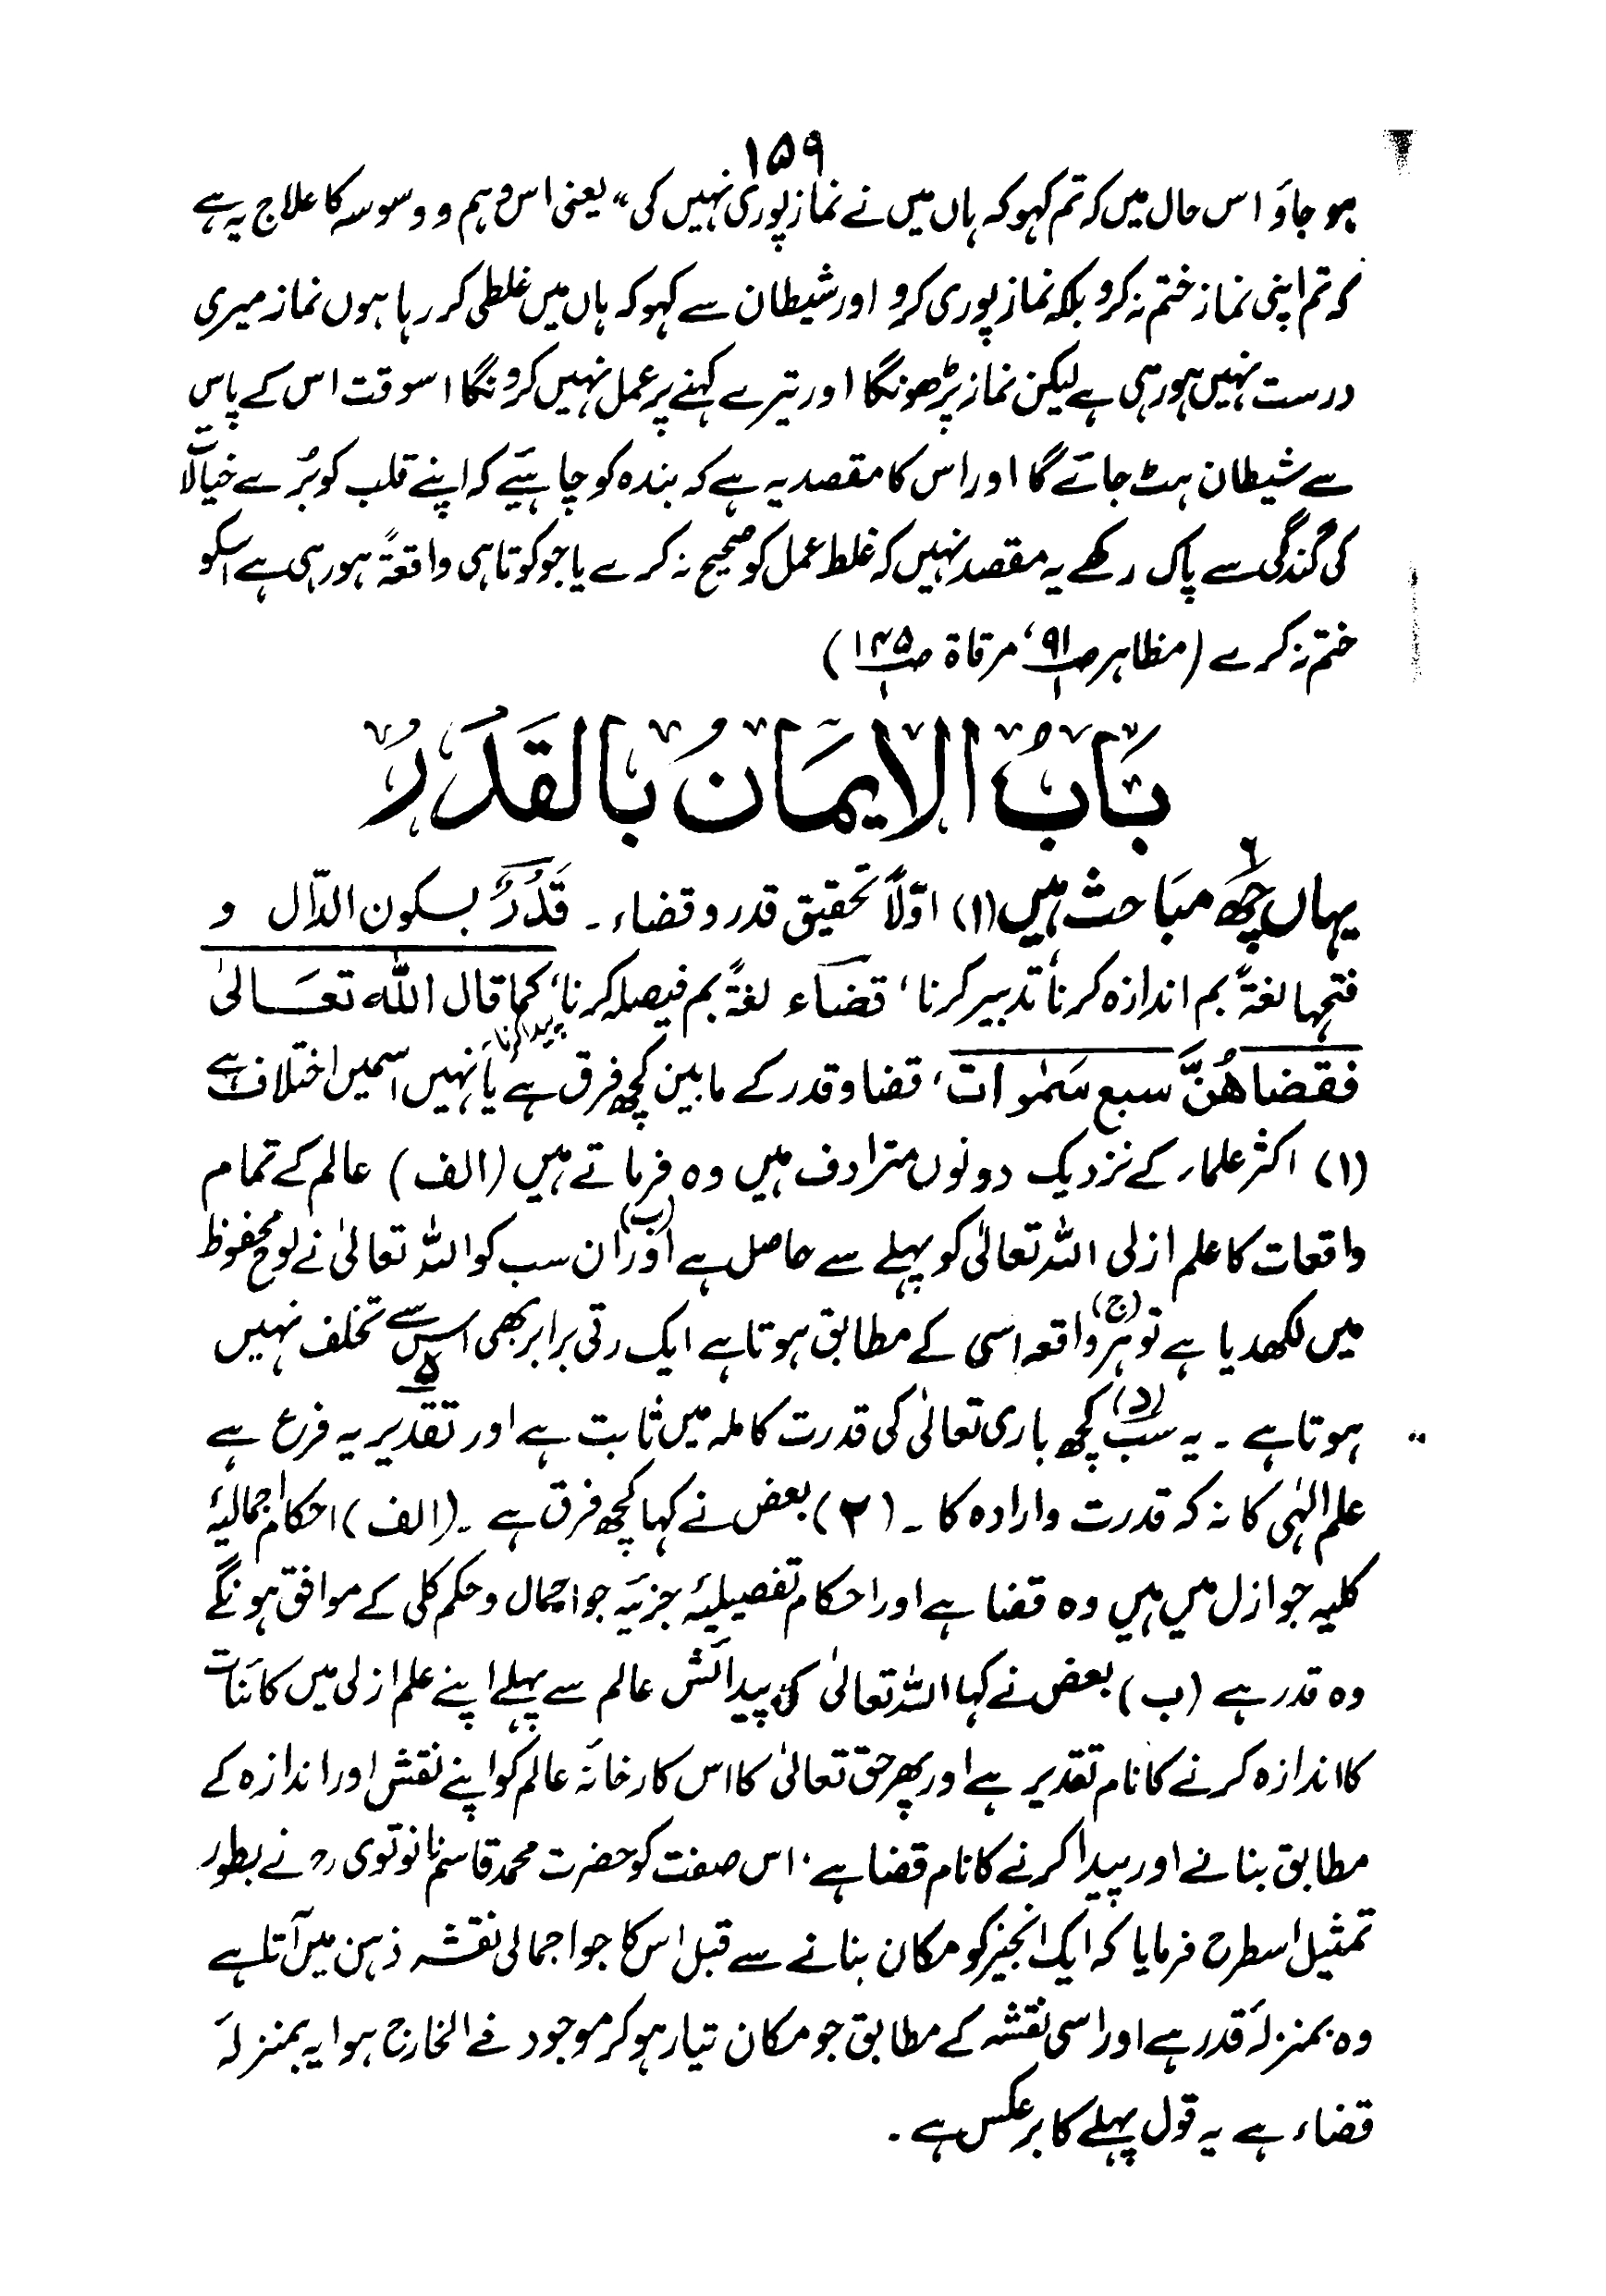 ۱۵۹
ہو جاؤ اس حال میں کہ تم کہو کہ ہاں میں نے نماز پوری نہیں کی" یعنی اس وہم و وسوسہ کا علاج یہ ہے
کہ تم اپنی نماز ختم نہ کرو بلکہ نماز پوری کرو اور شیطان سے کہو کہ ہاں میں غلطی کر رہا ہوں نماز میری
درست نہیں ہو رہی ہے لیکن نماز پڑھونگا اور تیرے کہنے پر عمل نہیں کرونگا اسوقت اس کے پاس
سے شیطان ہٹ جائے گا اور اس کا مقصد یہ ہے کہ بندہ کو چاہیئے کہ اپنے قلب کو بُرے خیالات
کی گندگی سے پاک رکھے یہ مقصد نہیں کہ غلط عمل کو صحیح نہ کرے یا جو کوتاہی واقعۃً ہو رہی ہے اسکو
ختم نہ کرے (مظاہر ص۹۱/۱، مرقاۃ ص۱۴۵/۱)
بَابُ الایمَانُ بالقَدَرُ
یہاں چھ ۶ مبَاحث ہیں (۱) اوّلاً تحقیق قدر و قضاء ۔ قَدْرٌ بسکون الدّال و
فتحہا لغۃً بم اندازہ کرنا، تدبیر کرنا، قضَاء لغۃً بم فیصلہ کرنا، پیدا کرنا۔ کما قال اللہ تعَالیٰ
فقضاھُنَّ سبع سَمٰوات، قضا و قدر کے مابین کچھ فرق ہے یا نہیں اسمیں اختلاف ہے
(۱) اکثر علماء کے نزدیک دونوں مترادف ہیں وہ فرماتے ہیں (الف) عالم کے تمام
واقعات کا علم ازلی اللہ تعالیٰ کو پہلے سے حاصل ہے (ب) اور ان سب کو اللہ تعالیٰ نے لوح محفوظ
میں لکھدیا ہے (ج) تو ہر واقعہ اسی کے مطابق ہوتا ہے ایک رتی برابر بھی اس سے تخلف نہیں
ہوتا ہے ۔ (د) یہ سب کچھ باری تعالیٰ کی قدرت کاملہ میں ثابت ہے ۵ اور تقدیر یہ فرع ہے
علم الٰہی کا نہ کہ قدرت وارادہ کا ۔ (۲) بعض نے کہا کچھ فرق ہے ۔ (الف) احکام اجمالیۂ
کلیہ جو ازل میں ہیں وہ قضا ہے اور احکام تفصیلیۂ جزئیہ جو اجمال و حکم کلی کے موافق ہونگے
وہ قدر ہے (ب) بعض نے کہا اللہ تعالیٰ کی پیدائش عالم سے پہلے اپنے علم ازلی میں کائنات
کا اندازہ کرنے کا نام تقدیر ہے اور پھر حق تعالیٰ کا اس کارخانۂ عالم کو اپنے نقش اور اندازہ کے
مطابق بنانے اور پیدا کرنے کا نام قضا ہے، اس صفت کو حضرت محمد قاسم نانوتوی رح نے بطور
تمثیل اسطرح فرمایا کہ ایک انجینر کو مکان بنانے سے قبل اس کا جو اجمالی نقشہ ذہن میں آتا ہے
وہ بمنزلۂ قدر ہے اور اسی نقشہ کے مطابق جو مکان تیار ہو کر موجود فے الخارج ہوا یہ بمنزلۂ
قضاء ہے یہ قول پہلے کا برعکس ہے ۔